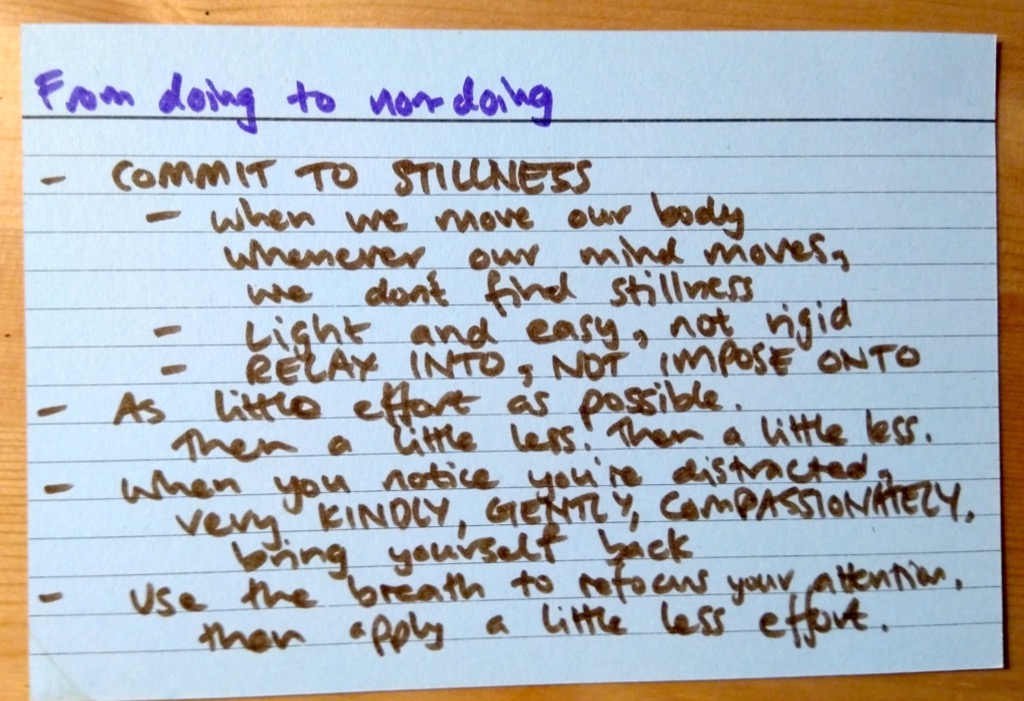 From doing to non-doing
- COMMIT TO STILLNESS
- When we move our body
whenever our mind moves,
we don't find stillness
- Light and easy, not rigid
- RELAX INTO, NOT IMPOSE ONTO
- As little effort as possible.
Then a little less. Then a little less.
- When you notice you're distracted,
very KINDLY, GENTLY, COMPASSIONATELY,
bring yourself back
- Use the breath to refocus your attention,
then apply a little less effort.